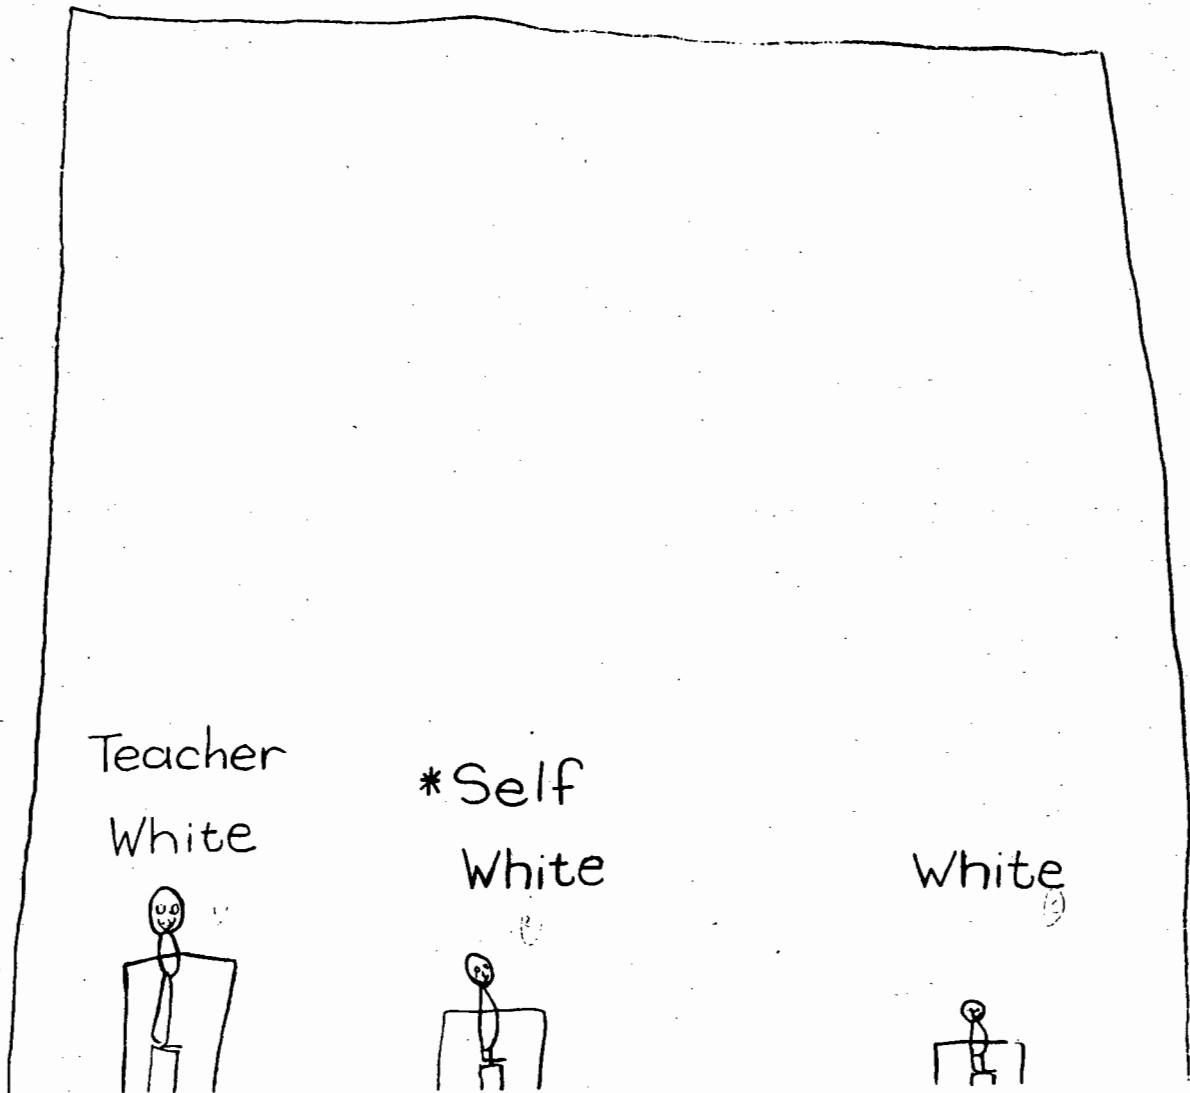 Teacher
White
*Self
White
White